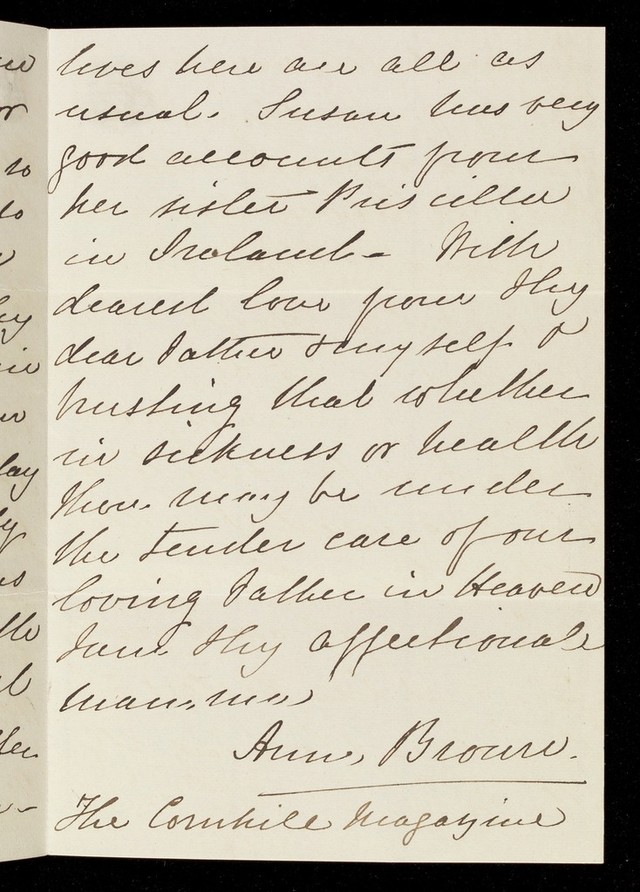 lives here are all as
usual. Susan has very
good accounts from
her sister Priscilla
in Ireland - With
dearest love from thy
dear Father & myself &
trusting that whether
in sickness or health
thou may be under
the tender care of our
loving Father in Heaven
I am thy affectionate
mamma
Ann Brown.
The Cornhill Magazine